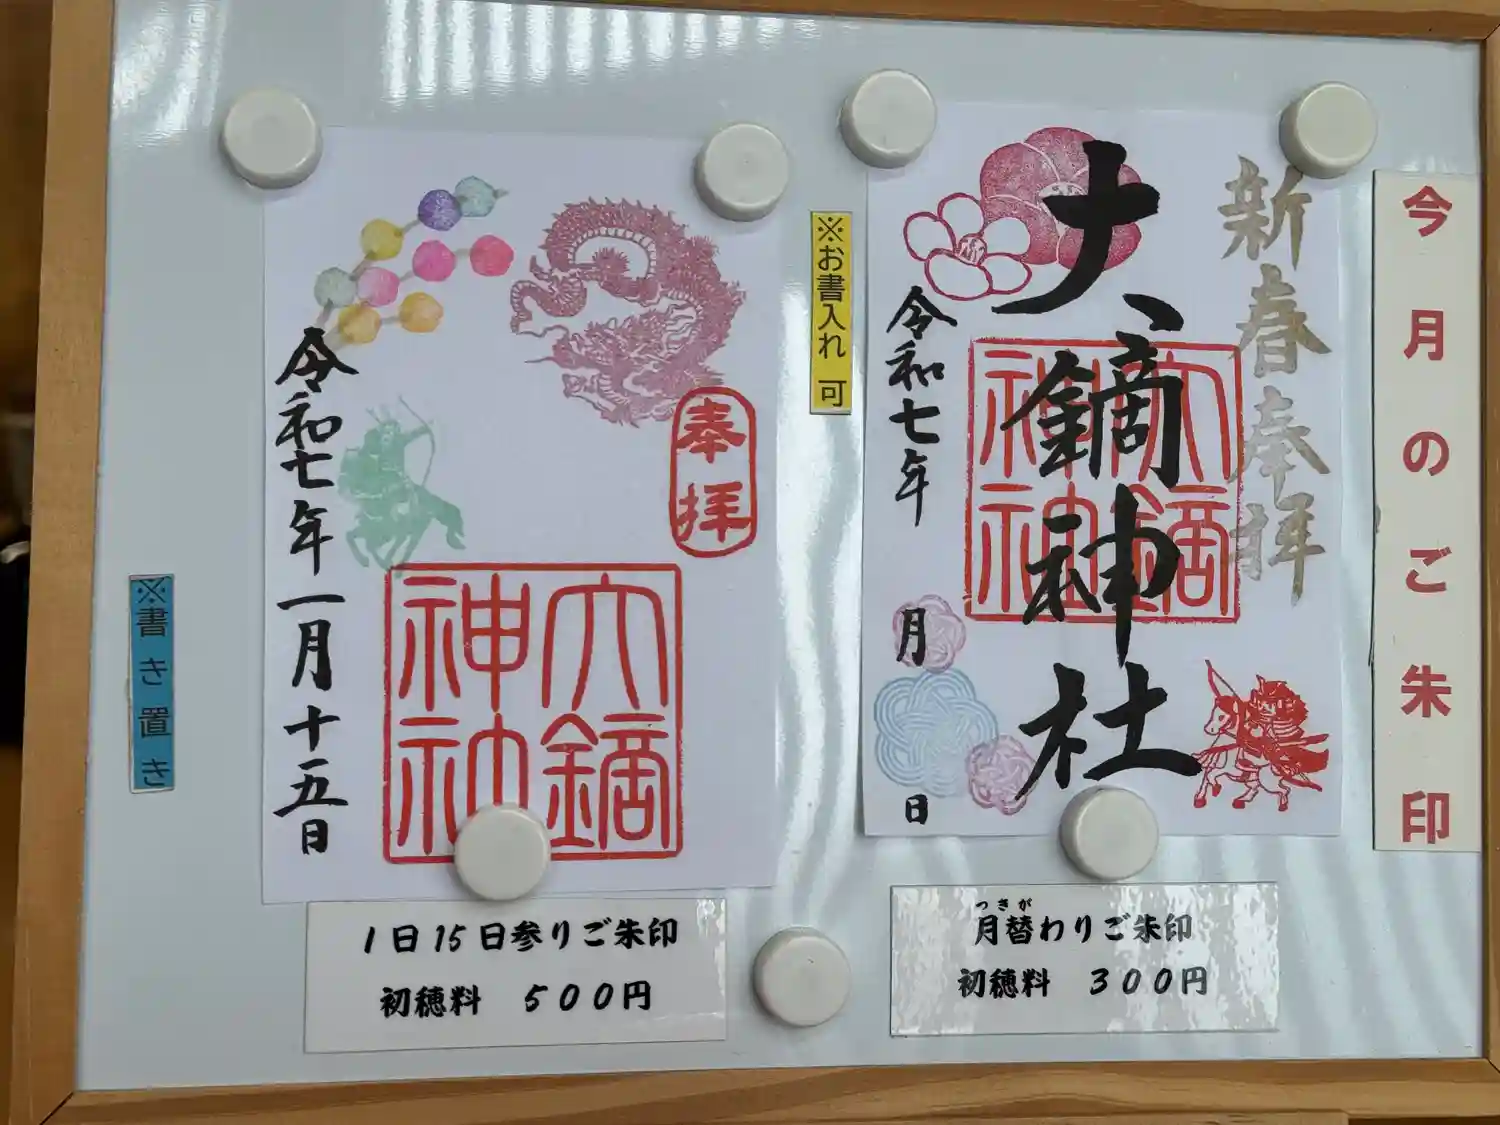 今月のご朱印
新春奉拝
六鏑神社
六鏑神社
令和七年
月
日
※お書入れ 可
月替わりご朱印
つきが
初穂料 300円
奉拝
六鏑神社
令和七年一月十五日
※書き置き
1日15日参りご朱印
初穂料 500円